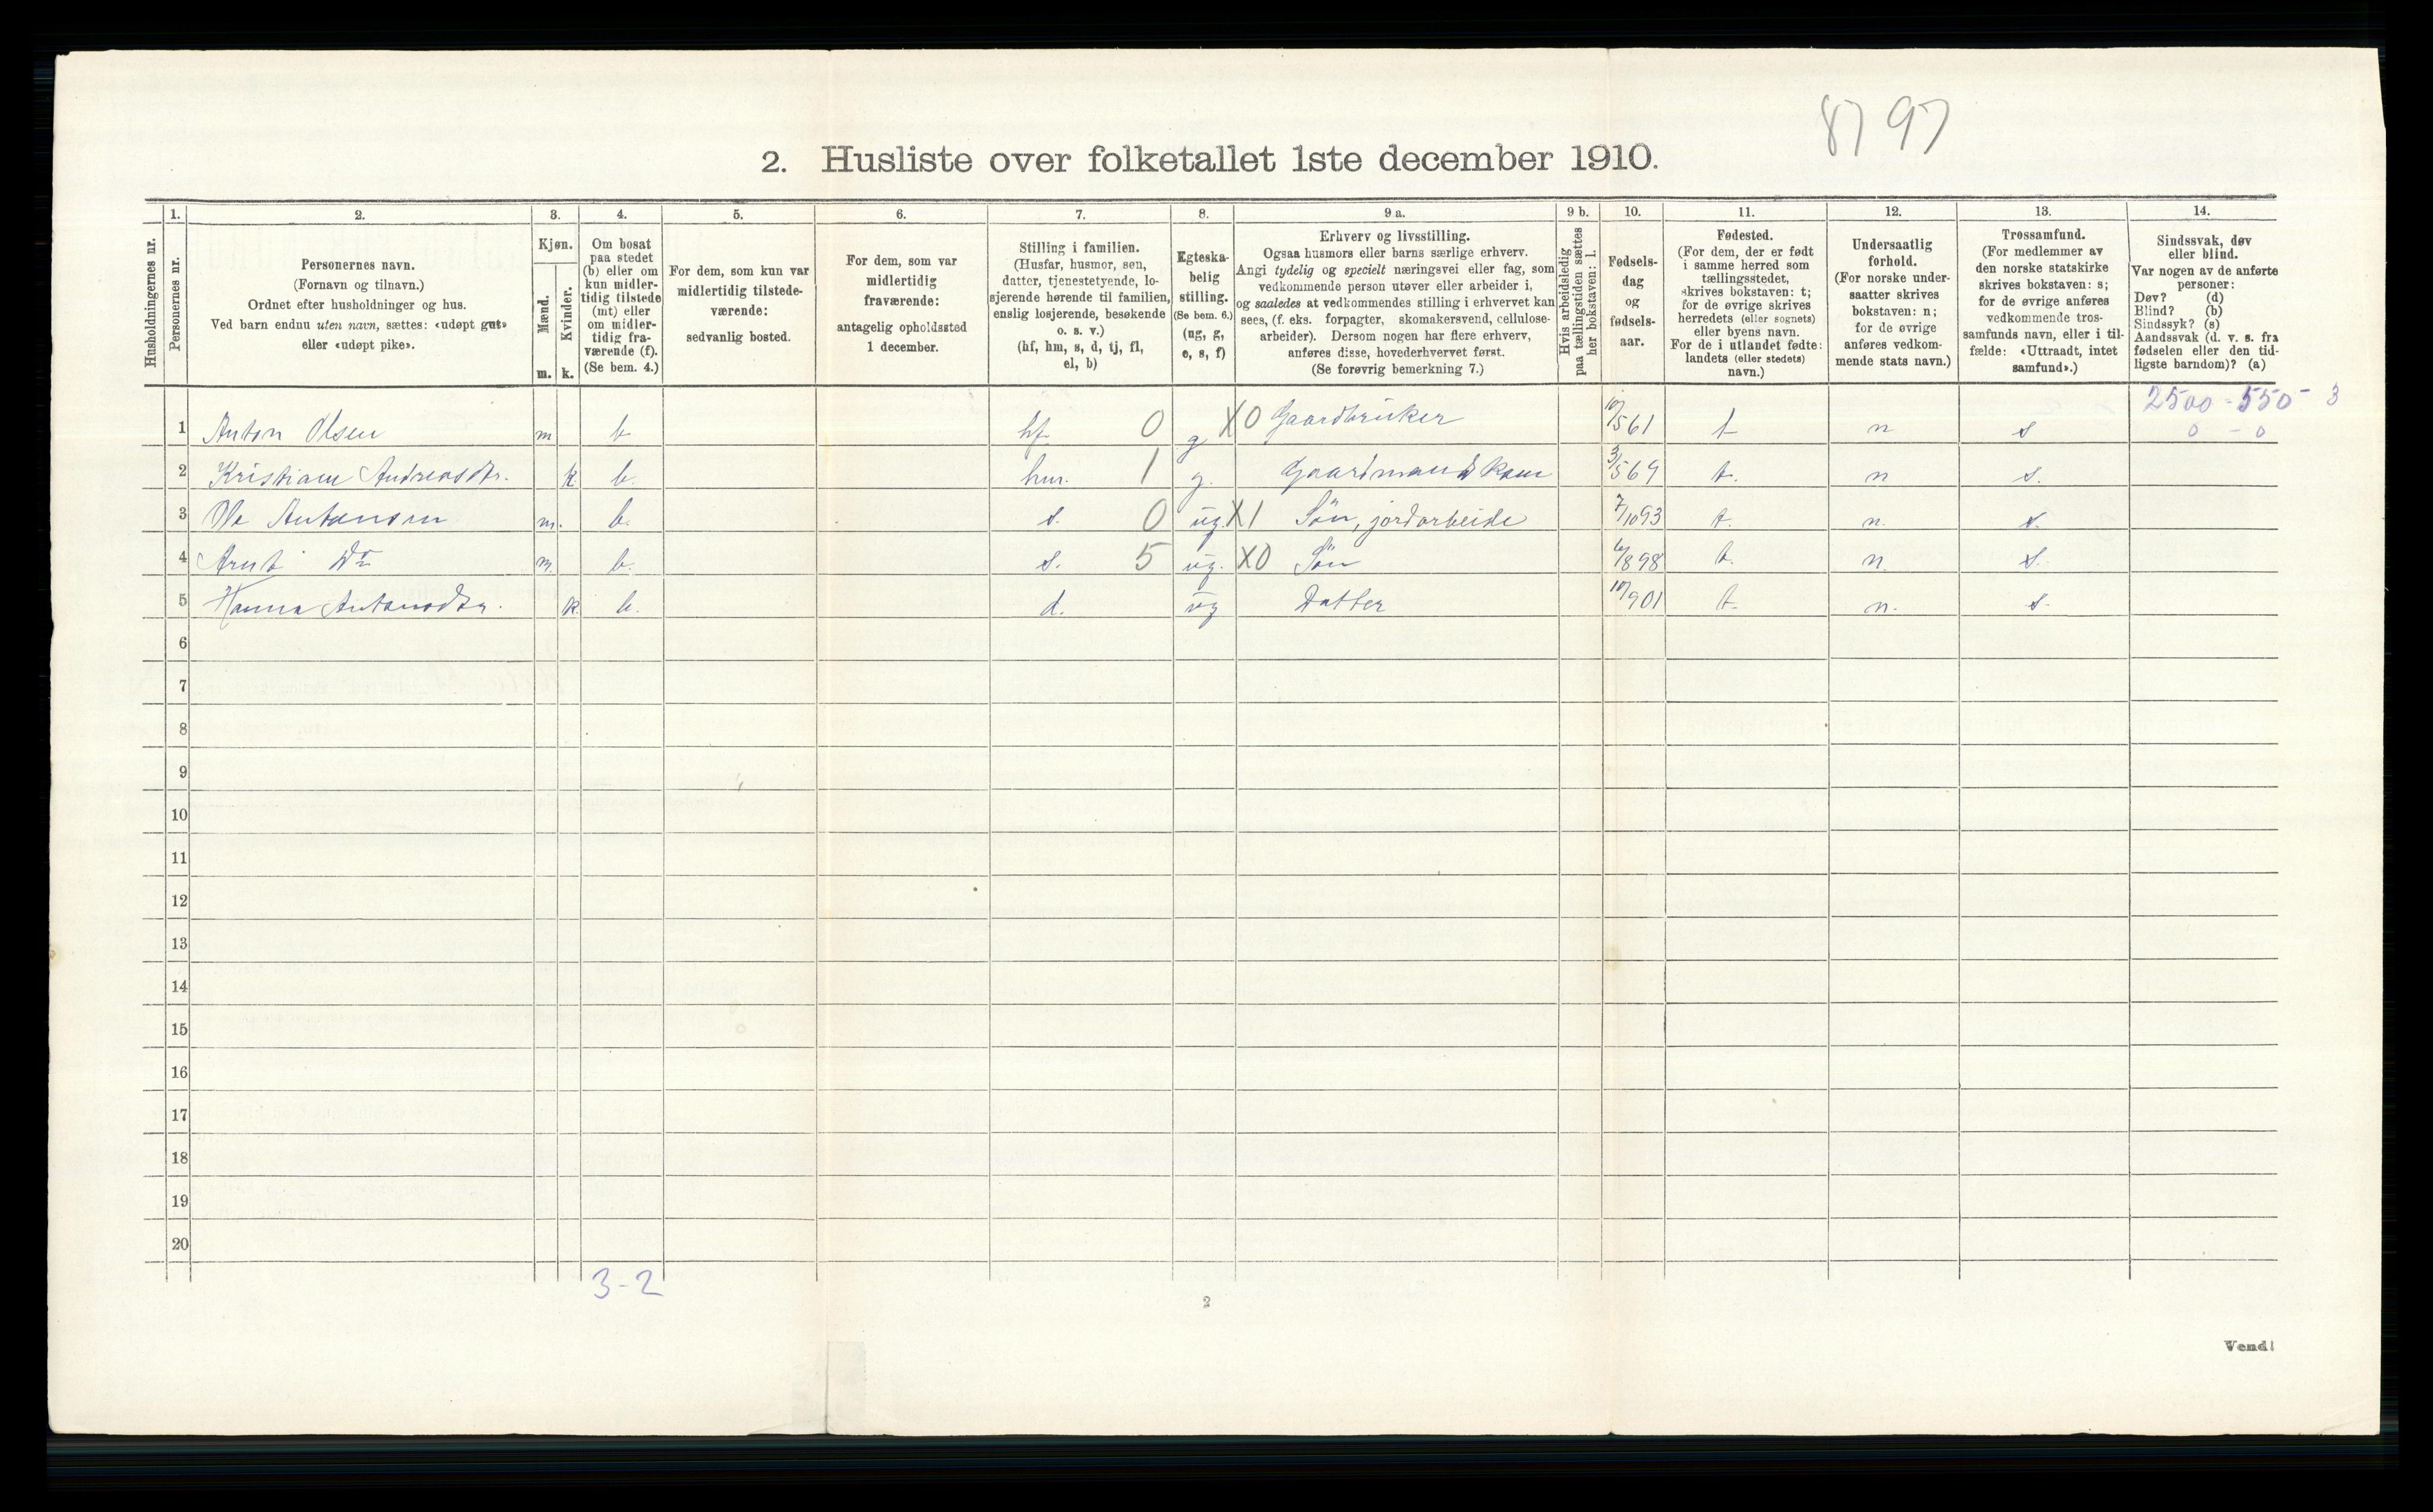 87 97
2. Husliste over folketallet 1ste december 1910.
1. 2. 3. 4. 5. 6. 7. 8. 9 a. 9 b. 10. 11. 12. 13. 14.
Husholdningernes nr.
Personernes nr.
Personernes navn.
(Fornavn og tilnavn.)
Ordnet efter husholdninger og hus.
Ved barn endnu uten navn, sættes: «udøpt gut»
eller «udøpt pike».
Kjøn.
Mænd.
Kvinder.
m. k.
Om bosat
paa stedet
(b) eller om
kun midler-
tidig tilstede
(mt) eller
om midler-
tidig fra-
værende (f).
(Se bem. 4.)
For dem, som kun var
midlertidig tilstede-
værende:
sedvanlig bosted.
For dem, som var
midlertidig
fraværende:
antagelig opholdssted
1 december.
Stilling i familien.
(Husfar, husmor, søn,
datter, tjenestetyende, lo-
sjerende hørende til familien,
enslig losjerende, besøkende
o. s. v.)
(hf, hm, s, d, tj, fl,
el, b)
Egteska-
belig
stilling.
(Se bem. 6.)
(ug, g,
e, s, f)
Erhverv og livsstilling.
Ogsaa husmors eller barns særlige erhverv.
Angi tydelig og specielt næringsvei eller fag, som
vedkommende person utøver eller arbeider i,
og saaledes at vedkommendes stilling i erhvervet kan
sees, (f. eks. forpagter, skomakersvend, cellulose-
arbeider). Dersom nogen har flere erhverv,
anføres disse, hovederhvervet først.
(Se forøvrig bemerkning 7.)
Hvis arbeidsledig
paa tællingstiden sættes
her bokstaven: l.
Fødsels-
dag
og
fødsels-
aar.
Fødested.
(For dem, der er født
i samme herred som
tællingsstedet,
skrives bokstaven: t;
for de øvrige skrives
herredets (eller sognets)
eller byens navn.
For de i utlandet fødte:
landets (eller stedets)
navn.)
Undersaatlig
forhold.
(For norske under-
saatter skrives
bokstaven: n;
for de øvrige
anføres vedkom-
mende stats navn.)
Trossamfund.
(For medlemmer av
den norske statskirke
skrives bokstaven: s;
for de øvrige anføres
vedkommende tros-
samfunds navn, eller i til-
fælde: «Uttraadt, intet
samfund».)
Sindssvak, døv
eller blind.
Var nogen av de anførte
personer:
Døv? (d)
Blind? (b)
Sindssyk? (s)
Aandssvak (d. v. s. fra
fødselen eller den tid-
ligste barndom)? (a)
2500 - 550 - 3
1 Anton Olsen m b hf 0 g X0 Gaardbruker 10/5 61 t n s 0 - 0
2 Kristiane Andreasdtr. k b. hm. 1 g. Gaardmandskone 3/5 69 t. n s.
3 Ole Antonsen m. b. s. 0 ug. X1 Sön, jordarbeide 7/10 93 t. n. s.
4 Arnt Do m. b. s. 5 ug. X0 Sön 6/8 98 t. n. s.
5 Hanna Antonsdtr. k. b. d. ug Datter t. n. s.
6
7
8
9
10
11
12
13
14
15
16
17
18
19
20
3-2
2
Vend!